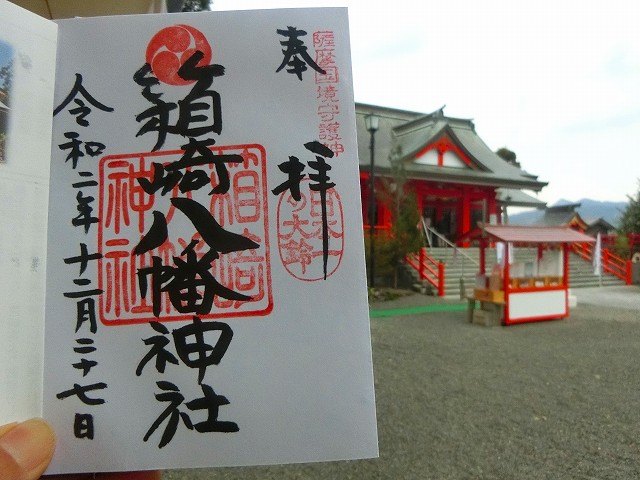 奉拝
薩摩国境守護神
日本一の大鈴
箱崎八幡神社
箱崎八幡神社
令和二年十二月二十七日